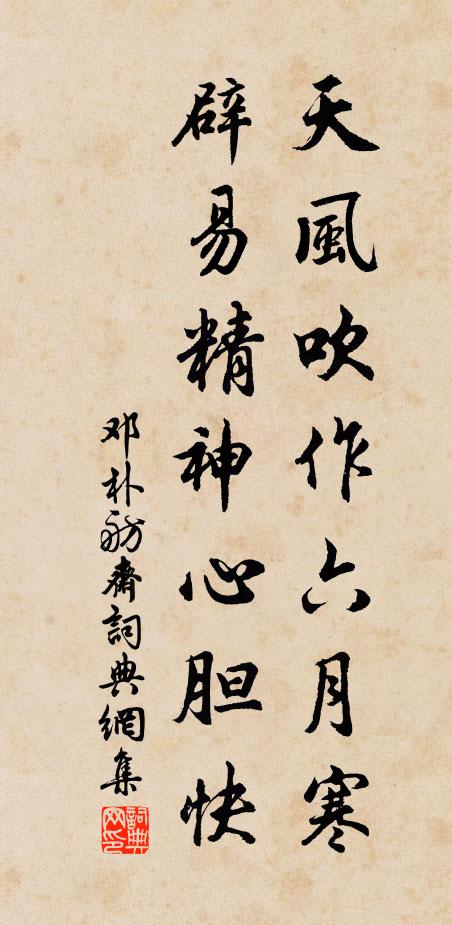 天風吹作六月寒
辟易精神心胆快
邓朴舫齋詞典網集
詞典网印